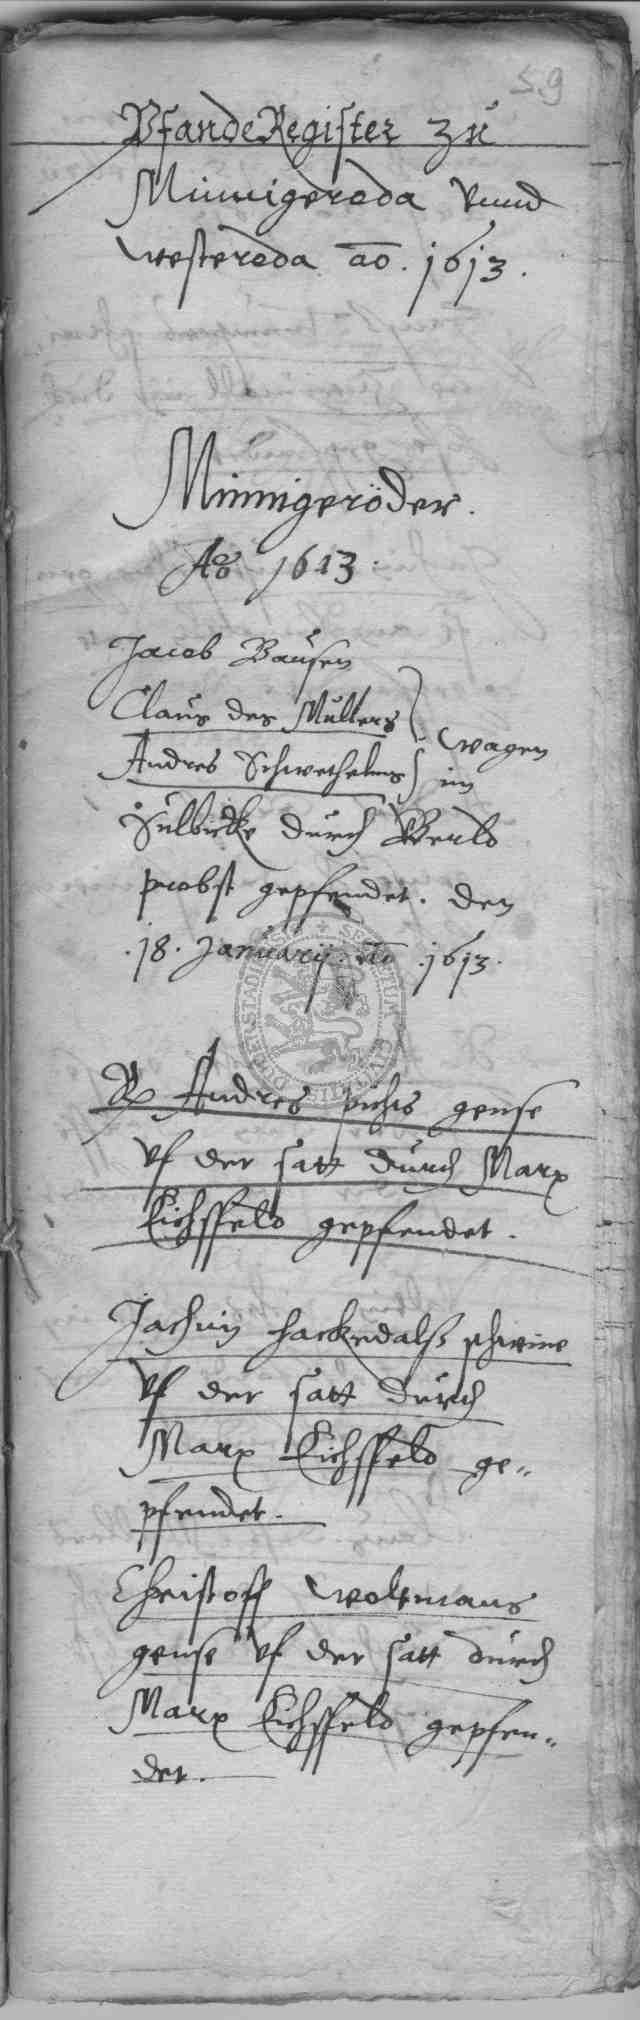 59
PfandeRegister zu
Minnigeroda vnnd
westeroda ao. 1613.
Minnigeröder.
Ao 1613.
Jacob Bausen
Claus des Mullers
Andres Schwethelms
wagen
im
Sulbicke durch Berld
probst gepfendet. den
.18. Januarij. Ao .1613.
Rx Andres pichs gense
vf der satt durch Marx
Eichsfeld gepfendet.
Jachim hackedalß schwine
vf der satt durch
Marx Eichsfeld ge-
pfendet.
Christoff woltmans
gense vf der satt durch
Marx Eichsfeld gepfen-
det.